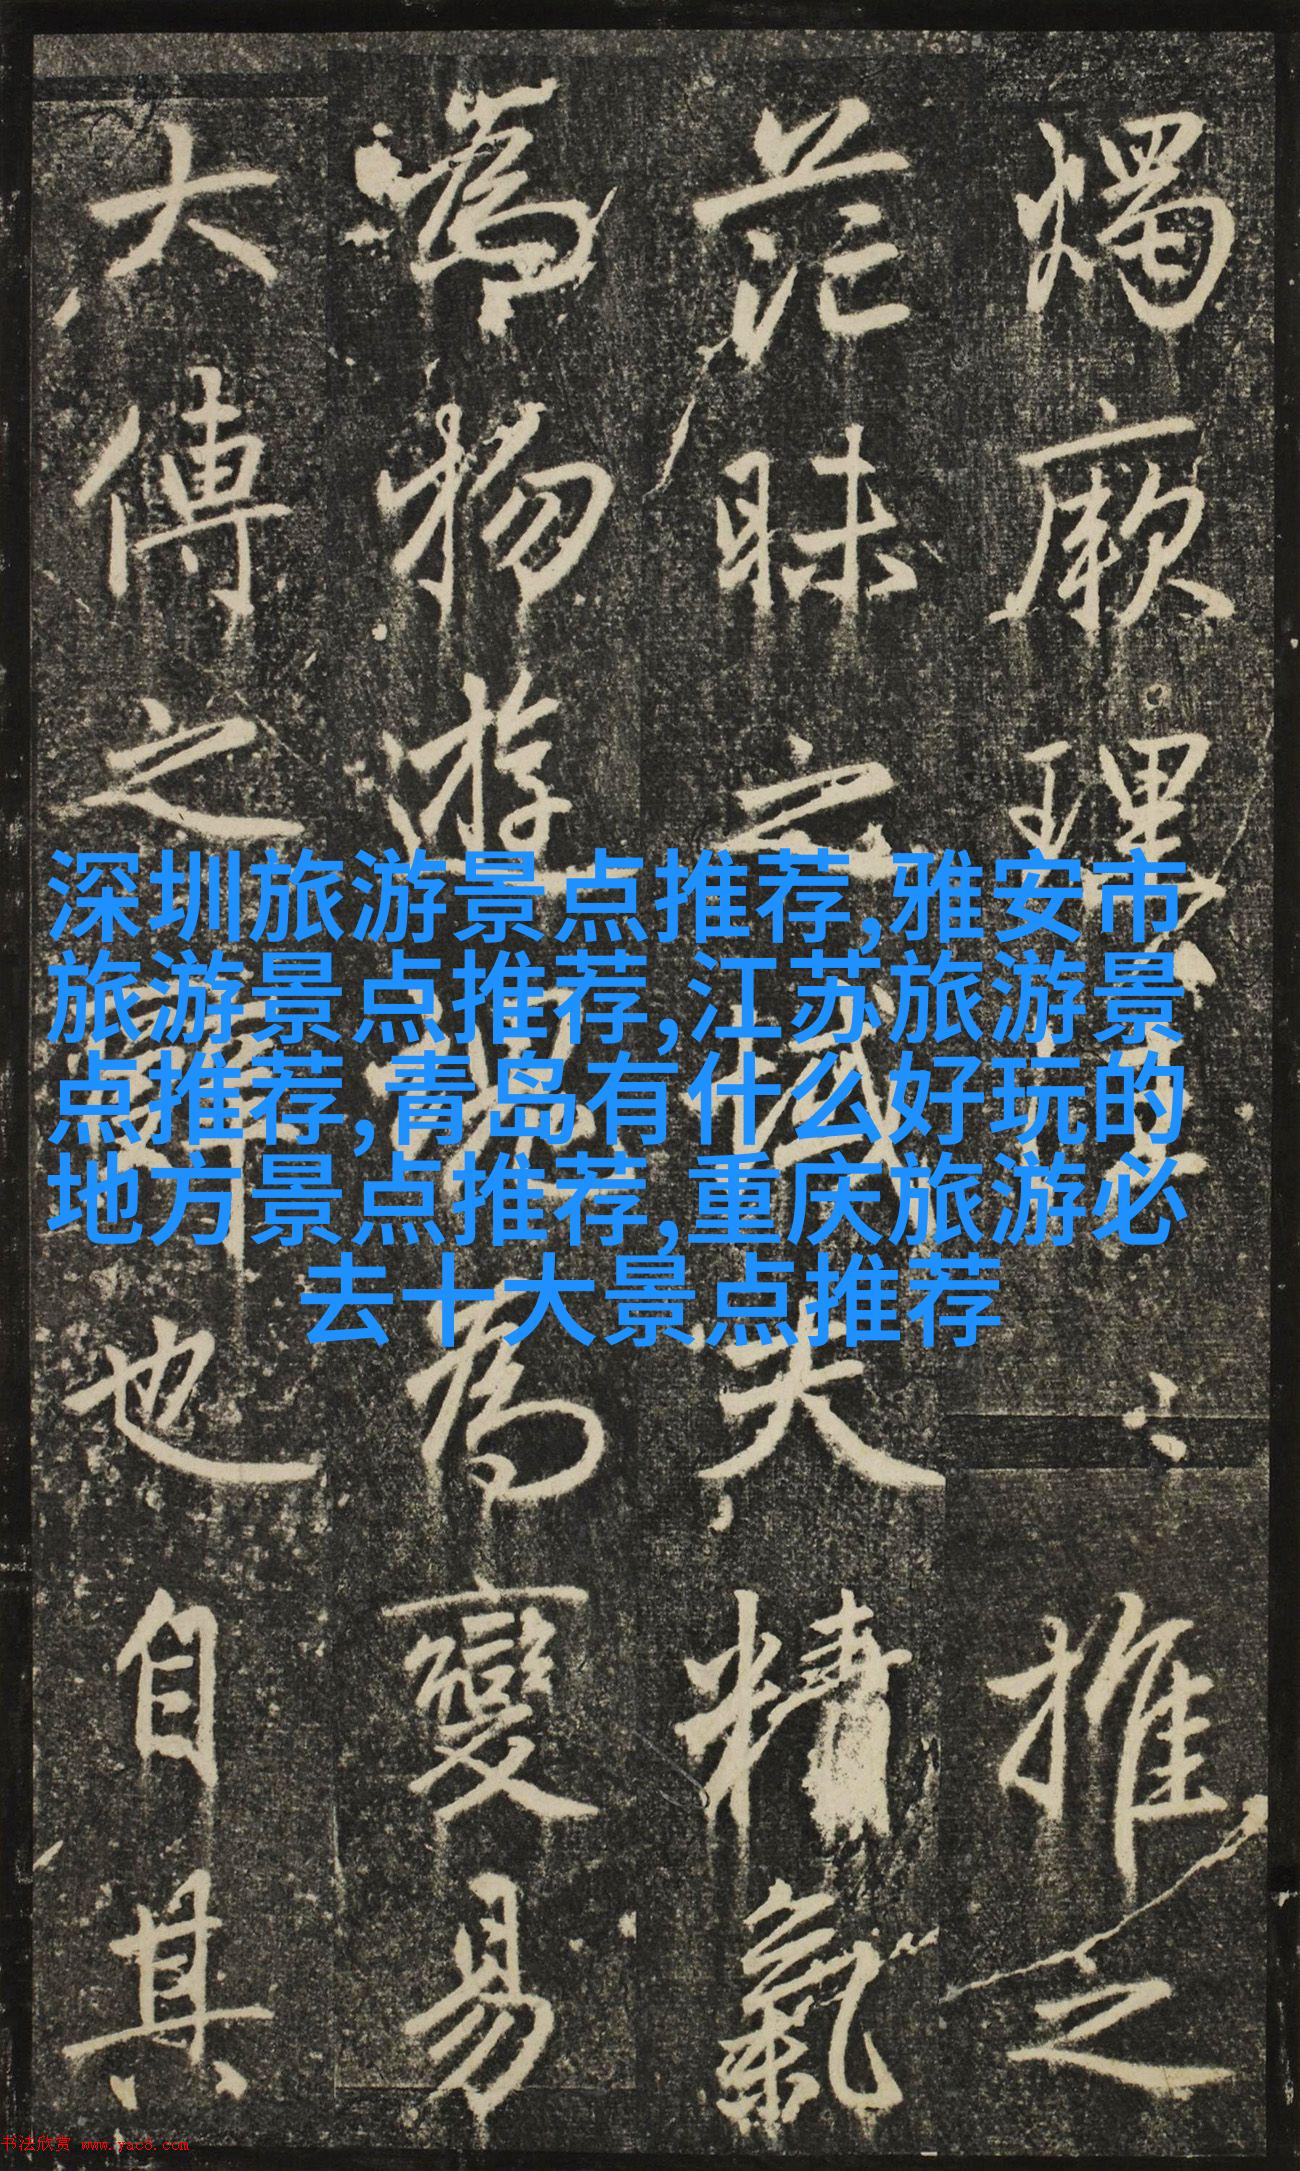 燭厥理推之
茫昧之域夫精氣
為物遊魂為變易
大傳之辭也自其
深圳旅游景点推荐,雅安市
旅游景点推荐,江苏旅游景
点推荐,青岛有什么好玩的
地方景点推荐,重庆旅游必
去十大景点推荐
书法欣赏 www.yac8.com